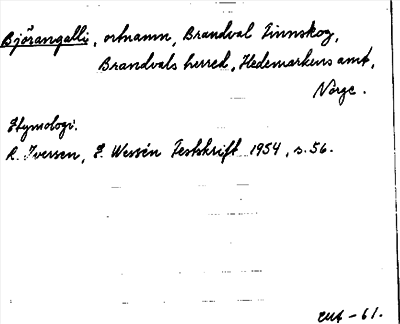 Björangalli, ortnamn, Brandval Finnskog,
Brandvals herred, Hedemarkens amt,
Norge.
Etymologi.
R. Iversen, E. Wessén Festskrift 1954, s. 56.
-61.